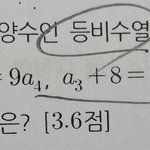 양수인 등비수열
= 9a₄, a₃ + 8 =
은? [3.6점]